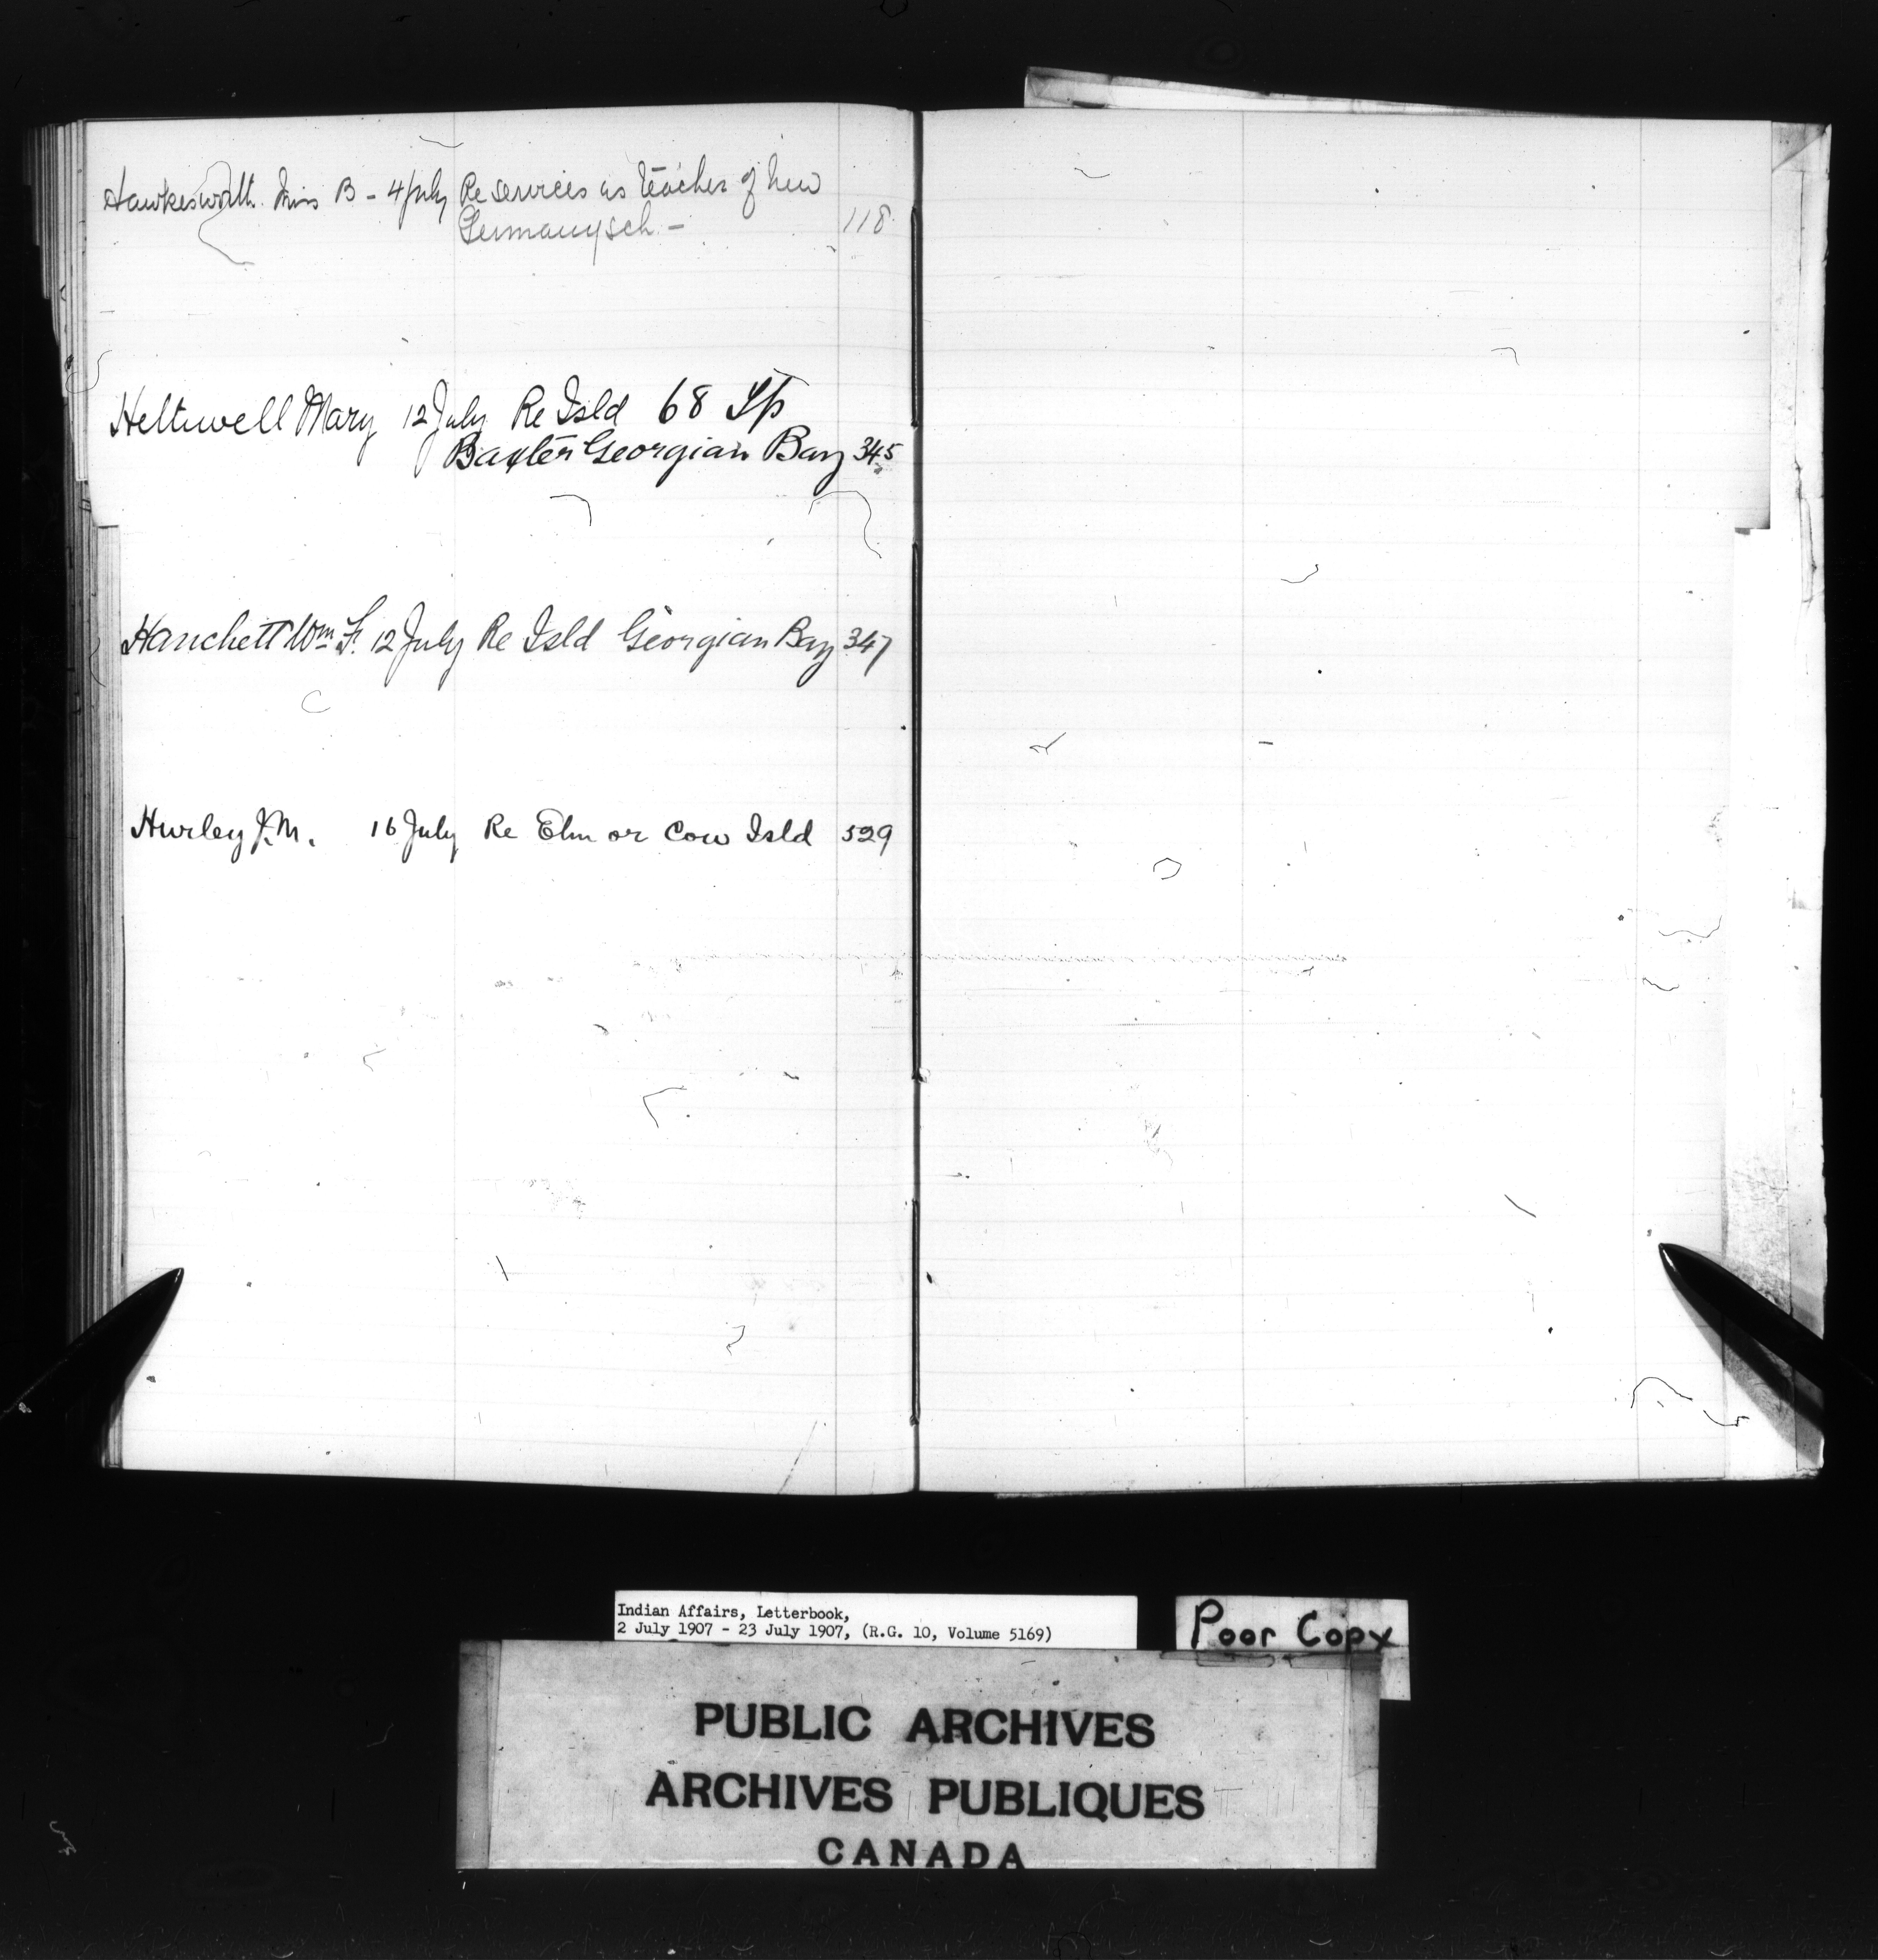 Hawkesworth Miss B - 4 July Re services as teacher of New
Germany sch - 118
Helliwell Mary 12 July Re Isld 68 Tp
Baxter Georgian Bay 345
Hanchett Wm F. 12 July Re Isld Georgian Bay 347
Hurley J.M. 16 July Re Elm or Cow Isld 529
Indian Affairs, Letterbook,
2 July 1907 - 23 July 1907, (R.G. 10, Volume 5169)
Poor Copy
PUBLIC ARCHIVES
ARCHIVES PUBLIQUES
CANADA